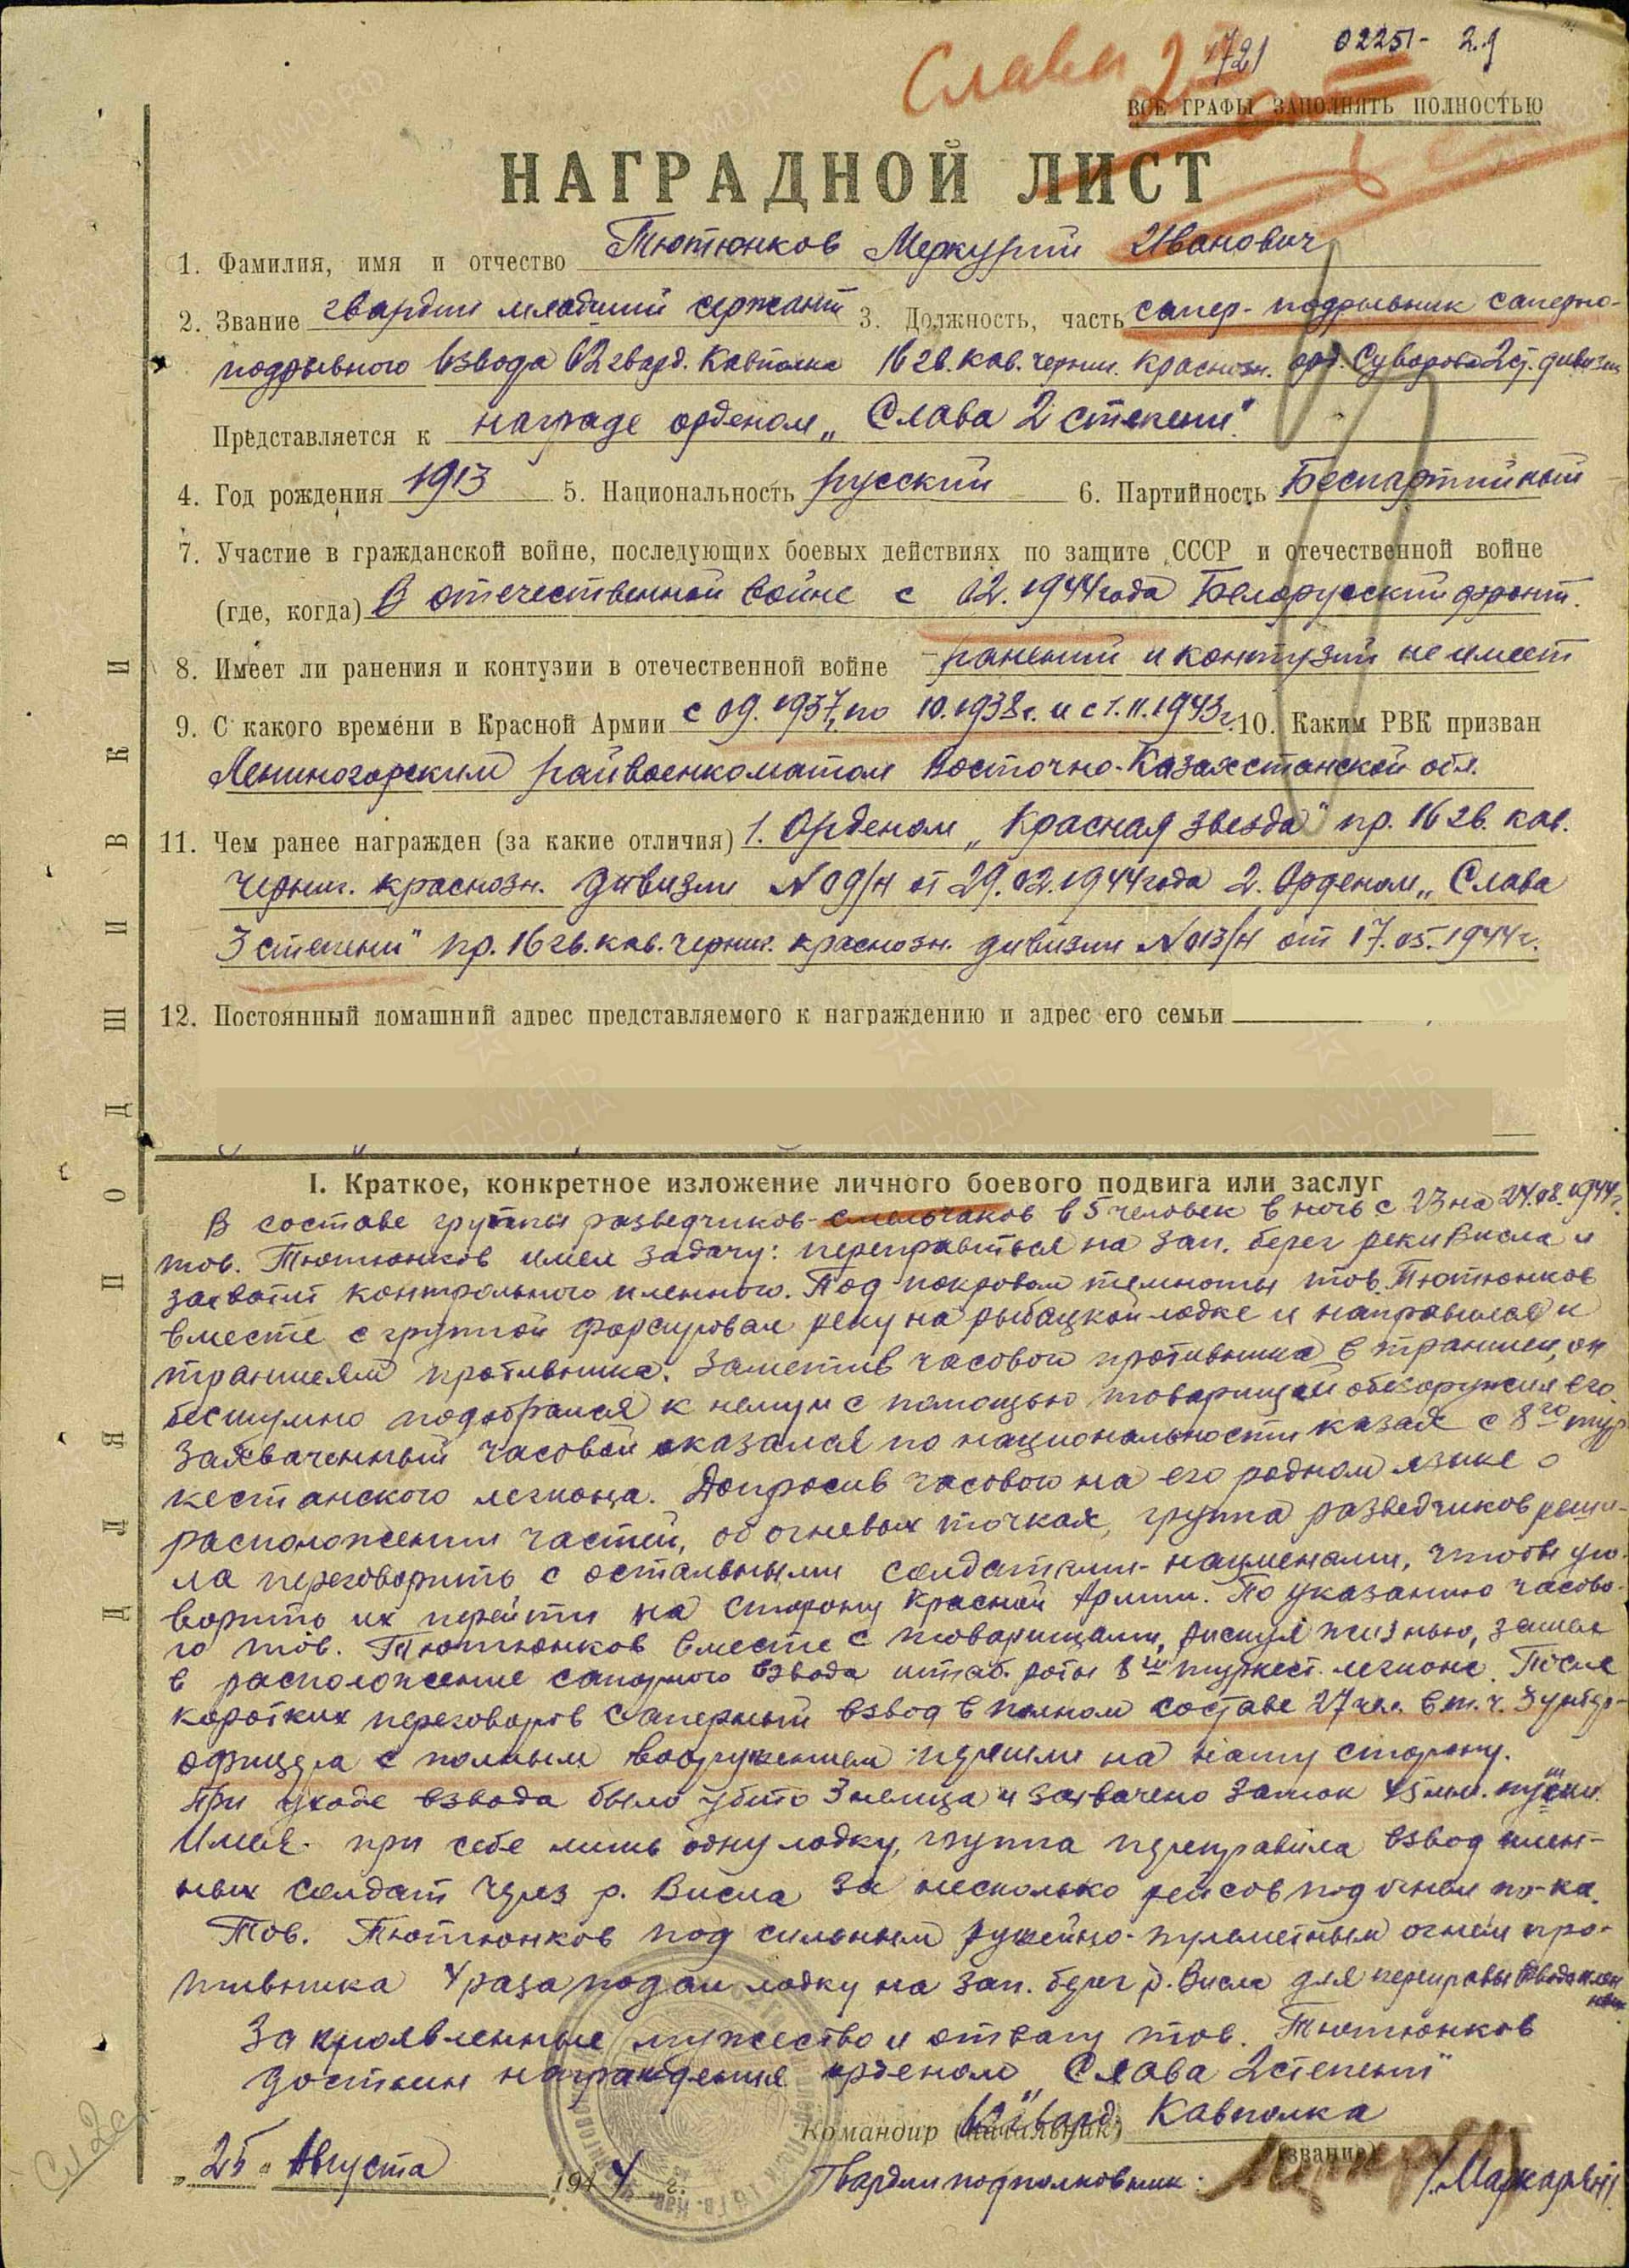 Слава 2
1721
02251- 2.9
ВСЕ ГРАФЫ ЗАПОЛНЯТЬ ПОЛНОСТЬЮ
НАГРАДНОЙ ЛИСТ
1. Фамилия, имя и отчество Тютюнков Меркурий Иванович
2. Звание гвардии младший сержант 3. Должность, часть сапер-подрывник саперно-
подрывного взвода 62 гвард. Кавполка 16 гв. кав. черниг. краснозн. орд. Суворова 2 ст. дивизии
Представляется к награде орденом „Слава 2 степени".
4. Год рождения 1913 5. Национальность русский 6. Партийность Беспартийный
7. Участие в гражданской войне, последующих боевых действиях по защите СССР и отечественной войне
(где, когда) В отечественной войне с 02.1944 года Белорусский фронт.
8. Имеет ли ранения и контузии в отечественной войне ранений и контузий не имеет
9. С какого времени в Красной Армии с 09.1937г. по 10.1938г. и с 1.11.1943г. 10. Каким РВК призван
Лениногорским райвоенкоматом Восточно-Казахстанской обл.
11. Чем ранее награжден (за какие отличия) 1. Орденом „Красная звезда" пр. 16 гв. кав.
черниг. краснозн. дивизии №09/н от 29.02.1944 года 2. Орденом „Слава
3 степени" пр. 16 гв. кав. черниг. краснозн. дивизии №013/н от 17.05.1944г.
12. Постоянный домашний адрес представляемого к награждению и адрес его семьи
I. Краткое, конкретное изложение личного боевого подвига или заслуг
В составе группы разведчиков-смельчаков в 5 человек в ночь с 23 на 24.08.1944г.
тов. Тютюнков имел задачу: переправиться на зап. берег реки Висла и
захватит контрольного пленного. Под покровом темноты тов. Тютюнков
вместе с группой форсировал реку на рыбацкой лодке и направился к
траншеям противника. Заметив часового противника в траншеи, он
бесшумно подобрался к нему и с помощью товарищей обезоружил его.
Захваченный часовой оказался по национальности казах с 8го тур-
кестанского легиона. Допросив часового на его родном языке о
расположении частей, об огневых точках, группа разведчиков реши-
ла переговорить с остальными солдатами-нацменами, чтобы уго-
ворить их перейти на сторону Красной Армии. По указанию часово-
го тов. Тютюнков вместе с товарищами, рискуя жизнью, зашел
в расположение саперного взвода штаб. роты 8го туркест. легиона. После
коротких переговоров саперный взвод в полном составе 27 чел. в т.ч. 3 унтер-
офицера с полным вооружением перешли на нашу сторону.
При уходе взвода было убито 3 немца и захвачено замок 45 мм. пушки.
Имея при себе лишь одну лодку, группа переправила взвод плен-
ных солдат через р. Висла за несколько рейсов под огнем пр-ка.
Тов. Тютюнков под сильным ружейно-пулеметным огнем про-
тивника 4 раза подал лодку на зап. берег р. Висла для переправы взвода плен
ных
За проявленные мужество и отвагу тов. Тютюнков
достоин награждения орденом Слава 2 степени"
Командир (начальник) 62 гвард. Кавполка
(звание)
„25" Августа 1944 г. Гвардии подполковник: /Маркарян/
Сл 2с
ДЛЯ ПОДШИВКИ
ПАМЯТЬ НАРОДА
ЦАМО.РФ